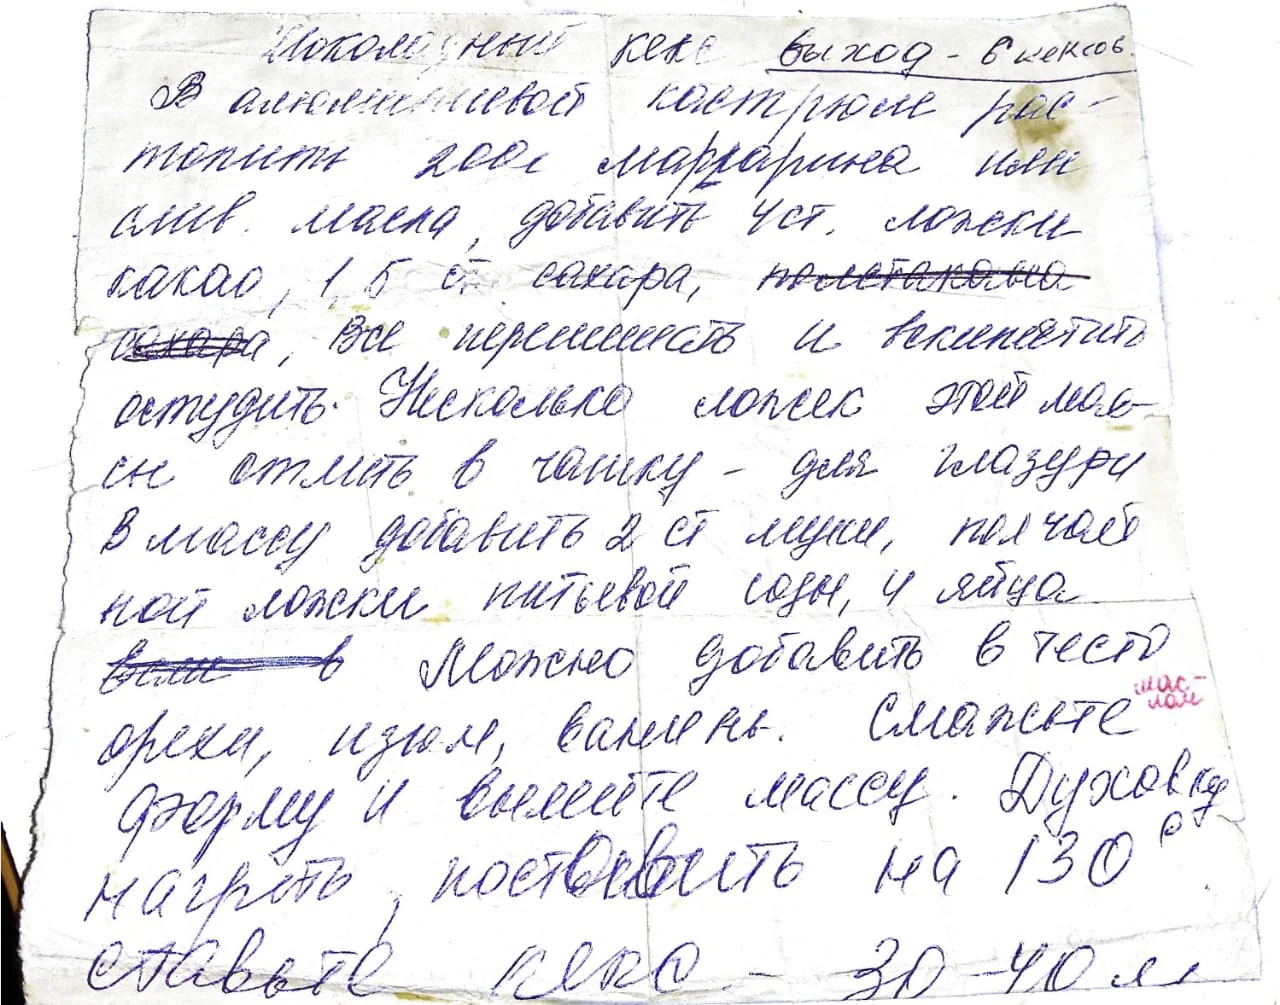 Шоколадный кекс выход - 6 кексов
В алюминиевой кастрюле рас-
топить 200г маргарина или
слив. масла, добавить 4 ст. ложки
какао, 1,5 ст сахара, полстакана
сахара, Все перемешать и вскипятить
остудить. Несколько ложек этой мас-
сы отлить в чашку - для глазури
В массу добавить 2 ст муки, пол чай
ной ложки питьевой соды, 4 яйца
в Можно добавить в тесто
орехи, изюм, ваниль. Смажьте мас-
лом
форму и вылейте массу. Духовку
нагреть, поставить на 130°
ставьте кекс - 30-40 м